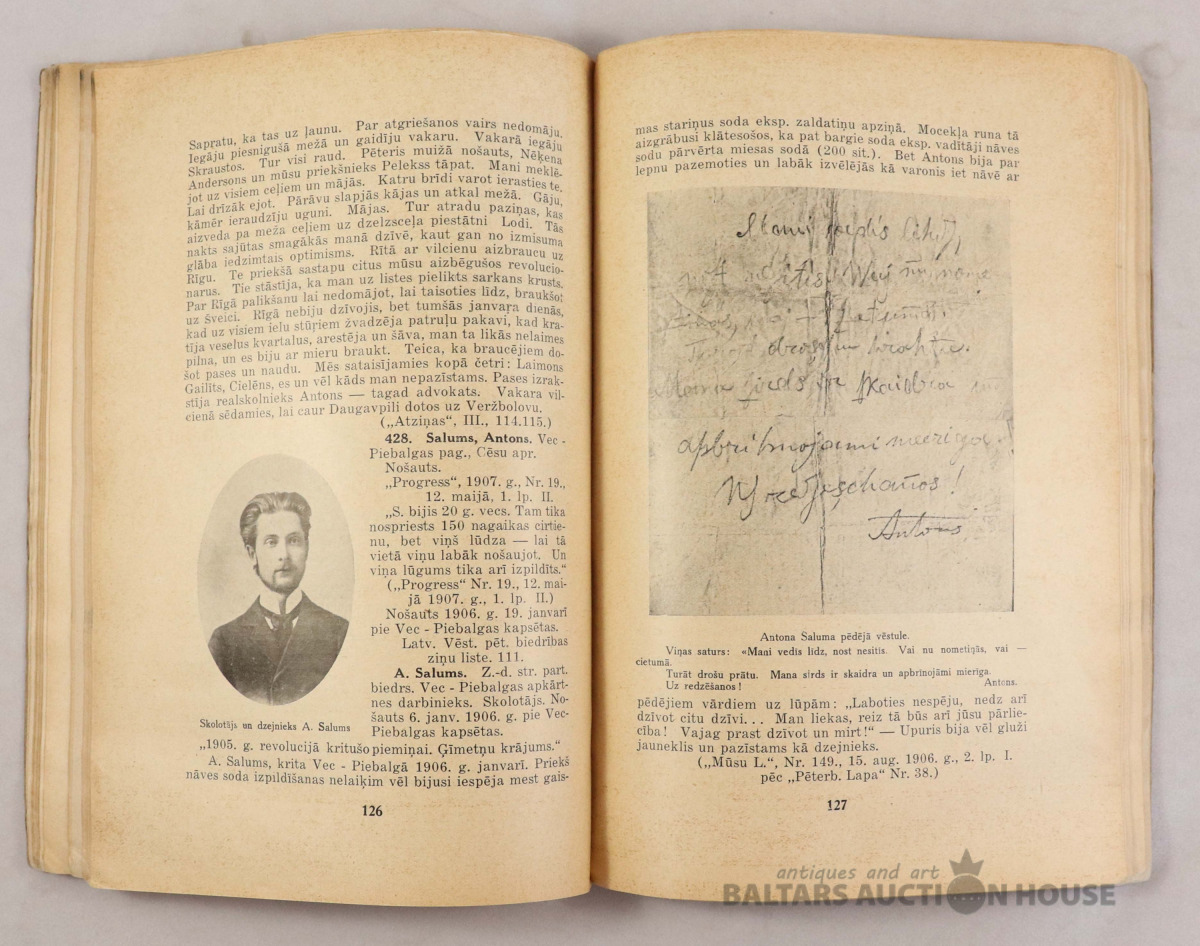 Sapratu, ka tas uz ļaunu. Par atgriešanos vairs nedomāju.
Iegāju piesnigušā mežā un gaidīju vakaru. Vakarā iegāju
Skraustos. Tur visi raud. Pēteris muižā nošauts, Nēķena
Andersons un mūsu priekšnieks Pelekss tāpat. Mani meklē-
jot uz visiem ceļiem un mājās. Katru brīdi varot ierasties te.
Lai drīzāk ejot. Pārāvu slapjās kājas un atkal mežā. Gāju,
kāmēr ieraudzīju uguni. Mājas. Tur atradu paziņas, kas
aizveda pa meža ceļiem uz dzelzsceļa piestātni Lodi. Tās
nakts sajūtas smagākās manā dzīvē, kaut gan no izmisuma
glāba iedzimtais optimisms. Rītā ar vilcienu aizbraucu uz
Rīgu. Te priekšā sastapu citus mūsu aizbēgušos revolucio-
narus. Tie stāstīja, ka man uz listes pielikts sarkans krusts.
Par Rīgā palikšanu lai nedomājot, lai taisoties līdz, braukšot
uz Šveici. Rīgā nebiju dzīvojis, bet tumšās janvaŗa dienās,
kad uz visiem ielu stūŗiem žvadzēja patruļu pakavi, kad kra-
tīja veselus kvartalus, arestēja un šāva, man ta likās nelaimes
pilna, un es biju ar mieru braukt. Teica, ka braucējiem do-
šot pases un naudu. Mēs sataisījamies kopā četri: Laimons
Gailīts, Cielēns, es un vēl kāds man nepazīstams. Pases izrak-
stīja realskolnieks Antons — tagad advokats. Vakara vil-
cienā sēdamies, lai caur Daugavpili dotos uz Veržbolovu.
(„Atziņas“, III., 114.115.)
428. Salums, Antons. Vec -
Piebalgas pag., Cēsu apr.
Nošauts.
„Progress“, 1907. g., Nr. 19.,
12. maijā, 1. lp. II.
„S. bijis 20 g. vecs. Tam tika
nospriests 150 nagaikas cirtie-
nu, bet viņš lūdza — lai tā
vietā viņu labāk nošaujot. Un
viņa lūgums tika arī izpildīts.“
(„Progress“ Nr. 19., 12. mai-
jā 1907. g., 1. lp. II.)
Nošauts 1906. g. 19. janvarī
pie Vec - Piebalgas kapsētas.
Latv. Vēst. pēt. biedrības
ziņu liste. 111.
A. Salums. Z.-d. str. part.
biedrs. Vec - Piebalgas apkārt-
nes darbinieks. Skolotājs. No-
šauts 6. janv. 1906. g. pie Vec-
Piebalgas kapsētas.
Skolotājs un dzejnieks A. Salums
„1905. g. revolucijā kritušo piemiņai. Ģīmetņu krājums.“
A. Salums, krita Vec - Piebalgā 1906. g. janvarī. Priekš
nāves soda izpildīšanas nelaiķim vēl bijusi iespēja mest gais-
126
mas stariņus soda eksp. zaldatiņu apziņā. Mocekļa runa tā
aizgrābusi klātesošos, ka pat bargie soda eksp. vadītāji nāves
sodu pārvērta miesas sodā (200 sit.). Bet Antons bija par
lepnu pazemoties un labāk izvēlējās kā varonis iet nāvē ar
Mani
drosch
Mana sirds ir skaidra
apbrihnojami meeriga.
Us redseschanos!
Antons
Antona Saluma pēdējā vēstule.
Viņas saturs: «Mani vedīs līdz, nost nesitīs. Vai nu nometiņās, vai —
cietumā.
Turāt drošu prātu. Mana sirds ir skaidra un apbrīnojāmi mierīga.
Uz redzēšanos!
Antons.
pēdējiem vārdiem uz lūpām: „Laboties nespēju, nedz arī
dzīvot citu dzīvi... Man liekas, reiz tā būs arī jūsu pārlie-
cība! Vajag prast dzīvot un mirt!“ — Upuris bija vēl gluži
jauneklis un pazīstams kā dzejnieks.
(„Mūsu L.“, Nr. 149., 15. aug. 1906. g., 2. lp. I.
pēc „Pēterb. Lapa“ Nr. 38.)
127
antiques and art
BALTARS AUCTION HOUSE